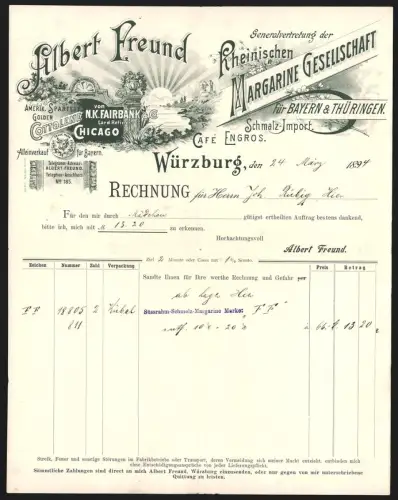 Albert Freund
Generalvertretung der
Rheinischen
Margarine Gesellschaft
für Bayern & Thüringen.
Schmalz-Import.
Café Engros.
Amerik. Speisefett
Golden
Cottolene
von
N.K. Fairbank & Co
Lard Refin.
Chicago
Alleinverkauf für Bayern.
Telegramm-Adresse:
ALBERT FREUND.
Telephon-Anschluss
No 163.
Würzburg, den 24 März 1894
Rechnung für Herrn Joh. Hier
Für den mir durch gütigst ertheilten Auftrag bestens dankend,
bitte ich, mich mit M 13.20 zu erkennen.
Hochachtungsvoll
Albert Freund.
Ziel 2 Monate oder Cassa mit 1% Sconto.
Zeichen Nummer Zahl Verpackung Preis Betrag
Sandte Ihnen für Ihre werthe Rechnung und Gefahr per
ab Lager Hier
FF 18805 2 Kübel Süssrahm-Schmelz-Margarine Marke: "FF"
811 10 - 20 66. 13 20
Streik, Feuer und sonstige Störungen im Fabrikbetriebe oder Transport, deren Vermeidung sich meiner Macht entzieht, entbinden mich
ohne Entschädigungsansprüche von jeder Lieferungspflicht.
Sämmtliche Zahlungen sind direct an mich Albert Freund, Würzburg einzusenden, oder nur gegen von mir unterschriebene
Quittung zu leisten.